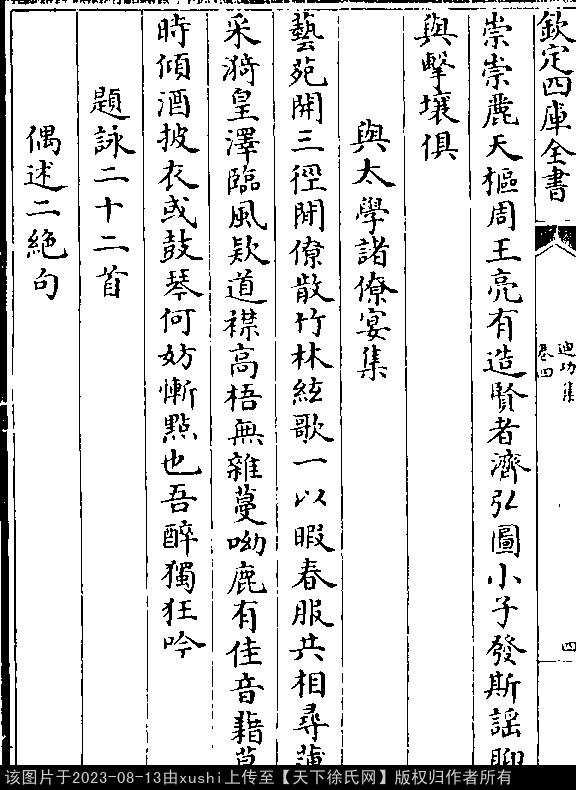 欽定四庫全書
迪功集
卷四
四
崇崇麗天樞周王亮有造賢者濟弘圖小子發斯謡聊
與擊壤俱
與太學諸僚宴集
藝苑開三徑閒僚散竹林絃歌一以暇春服共相尋蒲
采漪皇澤臨風欵道襟高梧無雜蔓呦鹿有佳音藉草
時傾酒披衣或鼓琴何妨慚點也吾醉獨狂吟
題詠二十二首
偶述二絶句
该图片于2023-08-13由xushi上传至【天下徐氏网】版权归作者所有